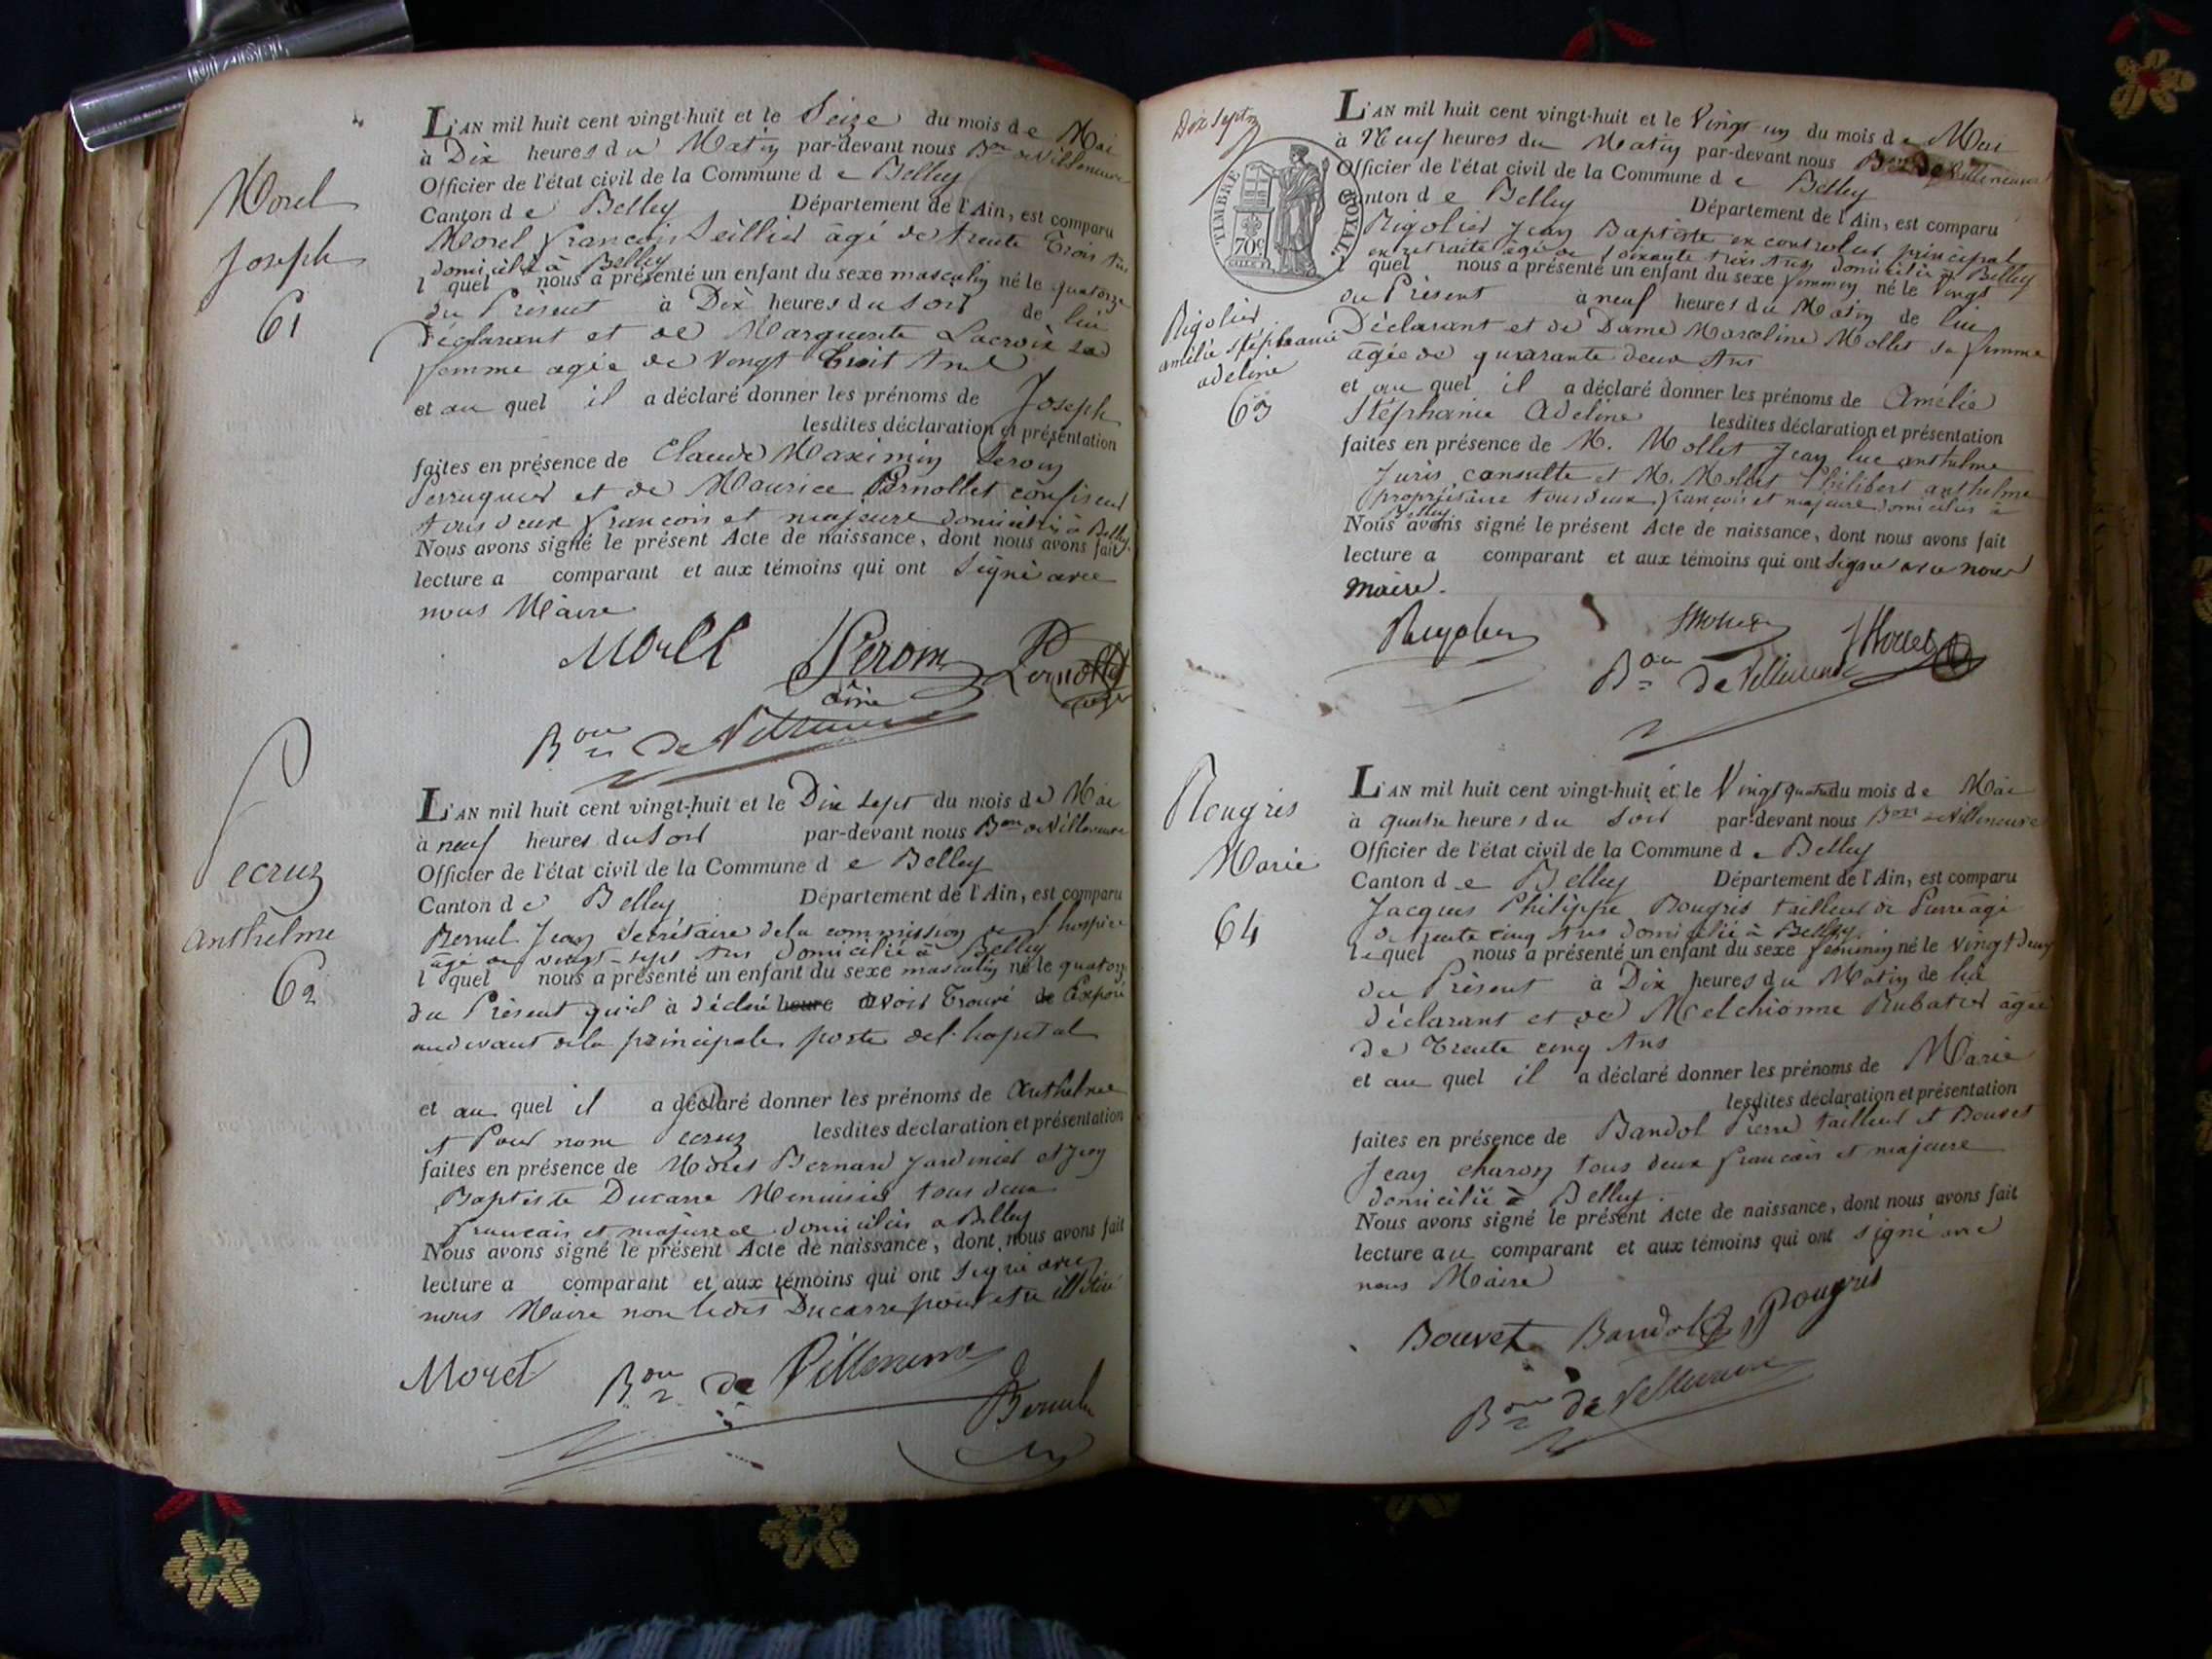 Morel
Joseph
61
L'AN mil huit cent vingt-huit et le Seize du mois de Mai
à Dix heures du Matin par-devant nous Bon de Villeneuve
Officier de l'état civil de la Commune de Belley
Canton de Belley Département de l'Ain, est comparu
Morel francois Seillier âgé de trente Trois Ans
domicilié à Belley
l quel nous a présenté un enfant du sexe masculin né le quatorze
du Présent à Dix heures du Soir de lui
Déclarant et de Marguerite Lacroix sa
femme agée de Vengt huit Ans
et au quel il a déclaré donner les prénoms de Joseph
lesdites déclaration et présentation
faites en présence de Claude Maximin Perom
Perruquier et de Maurice Pernollet confiseur
tous deux francois et majeure domiciliés à Belley.
Nous avons signé le présent Acte de naissance, dont nous avons fait
lecture a comparant et aux témoins qui ont Signé avec
nous Maire
Morel Perom Pernollet
ainé
Bon de Villeneuve
Pecruz
anthelme
62
L'AN mil huit cent vingt-huit et le Dix Sept du mois de Mai
à neuf heures du Soir par-devant nous Bon de Villeneuve
Officier de l'état civil de la Commune de Belley
Canton de Belley Département de l'Ain, est comparu
Bernel Jean Secrétaire de la commission de l'hospice
âgé de vingt-sept Ans domicilié à Belley
l quel nous a présenté un enfant du sexe masculin né le quatorze
du Présent qu'il à déclaré heure avoir Trouvé de Exposé
audevant de la principale porte del'hopital
et au quel il a déclaré donner les prénoms de Anthelme
et Pour nom Pecruz lesdites déclaration et présentation
faites en présence de Moret Bernard Jardinier et Jean
Baptiste Ducarre Menuisier tous deux
francais et majeure domiciliés a Belley
Nous avons signé le présent Acte de naissance, dont nous avons fait
lecture a comparant et aux témoins qui ont Signé avec
nous Maire non ledit Ducarre pour etre illétéré
Moret Bon de Villeneuve
Bernel
Dix Septm
TIMBRE ROYAL
70c
L'AN mil huit cent vingt-huit et le Vingt un du mois de Mai
à Neuf heures du Matin par-devant nous Bon de Villeneuve
Officier de l'état civil de la Commune de Belley
Canton de Belley Département de l'Ain, est comparu
Rigolier Jean Baptiste ex controleur principal
en retraite âgé de soixante trois Ans domicilié à Belley
l quel nous a présenté un enfant du sexe feminin né le Vingt
du Présent à neuf heures du Matin de lui
Déclarant et de Dame Marceline Mollet sa femme
âgée de quarante deux Ans
Rigolier
amélie Stéphanie
adeline
63
et au quel il a déclaré donner les prénoms de Amélie
Stéphanie Adeline lesdites déclaration et présentation
faites en présence de M. Mollet Jean luc anthelme
Juris consulte et M. Mollet Philibert anthelme
propriétaire tous deux françois et majeure domiciliés à
Belley.
Nous avons signé le présent Acte de naissance, dont nous avons fait
lecture a comparant et aux témoins qui ont Signé avec nous
Maire.
Rigolier Mollet Mollet
Bon de Villeneuve
Rougris
Marie
64
L'AN mil huit cent vingt-huit et le Vingt quatre du mois de Mai
à quatre heures du Soir par-devant nous Bon de Villeneuve
Officier de l'état civil de la Commune de Belley
Canton de Belley Département de l'Ain, est comparu
Jacques Philippe Rougris tailleur de Pierre âgé
de trente cinq Ans domicilié à Belley.
lequel nous a présenté un enfant du sexe feminin né le vingt deux
du Présent à Dix heures du Matin de lui
déclarant et de Melchionne Rubatier âgée
de Trente cinq Ans
et au quel il a déclaré donner les prénoms de Marie
lesdites déclaration et présentation
faites en présence de Bandol Pierre tailleur et Bouvet
Jean charon tous deux francais et majeure
domicilié à Belley.
Nous avons signé le présent Acte de naissance, dont nous avons fait
lecture au comparant et aux témoins qui ont signé avec
nous Maire
Bouvet Bandol Rougris
Bon de Villeneuve